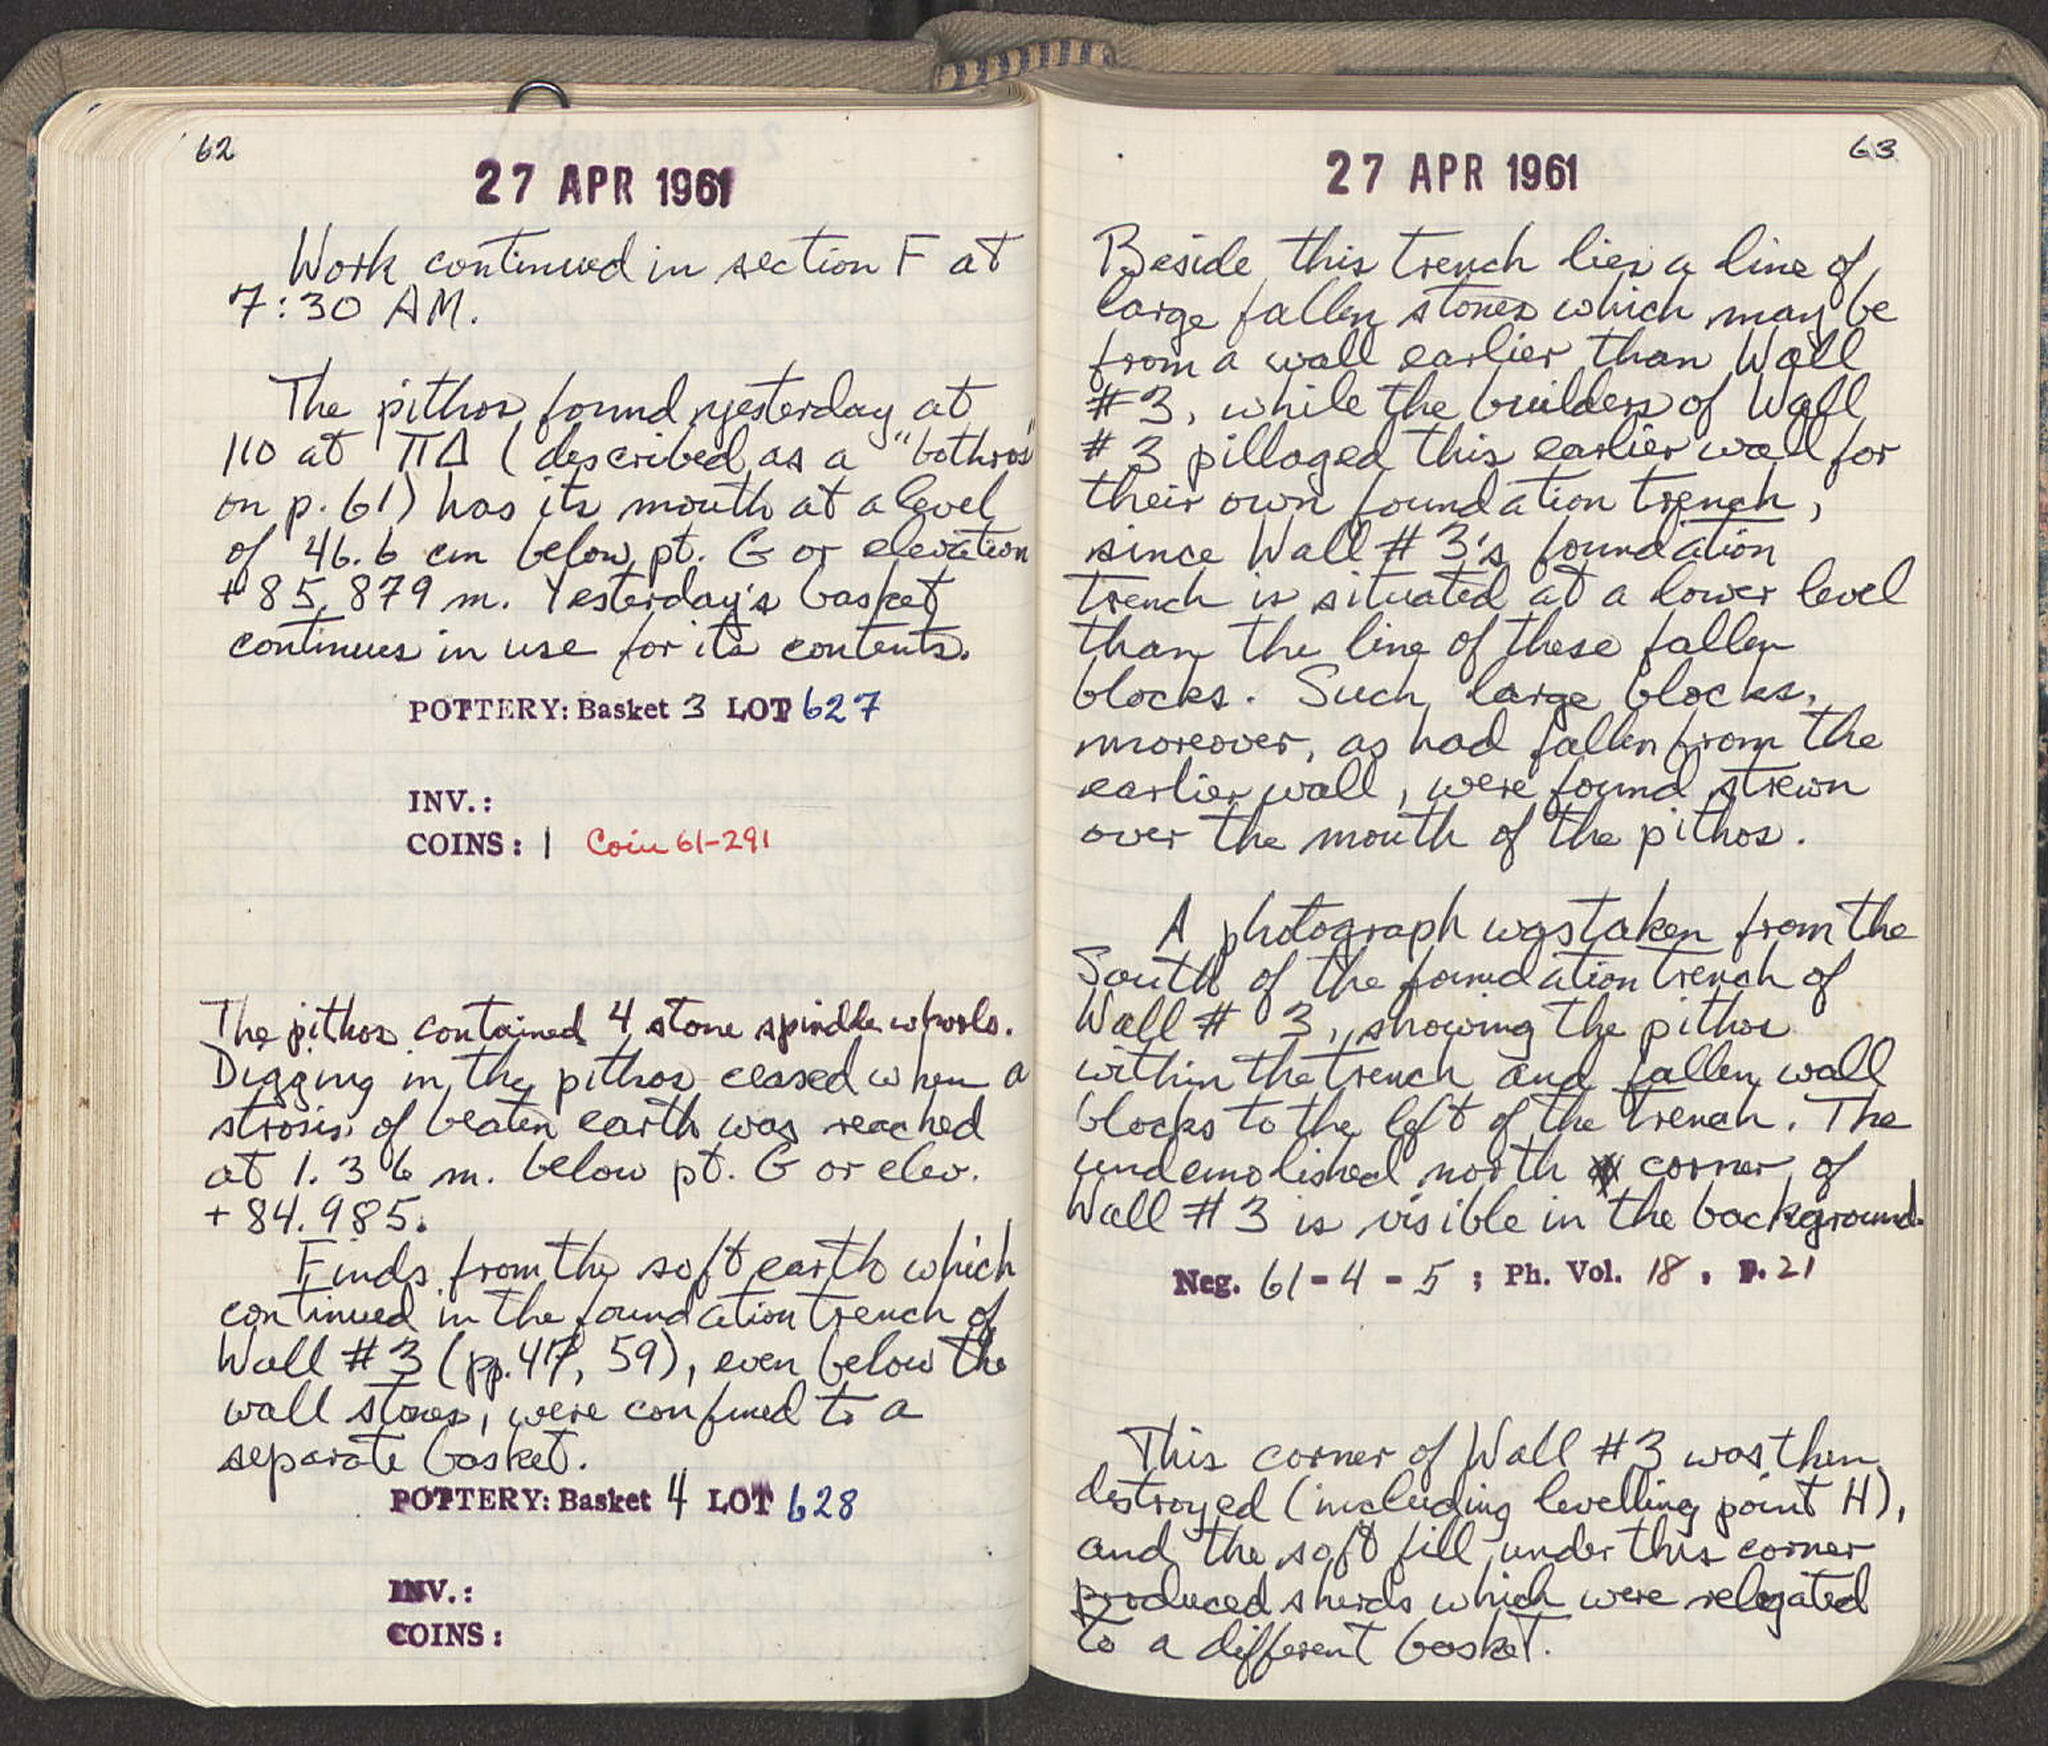 62
27 APR 1961
Work continued in section F at
7:30 AM.
The pithos found yesterday at
110 at ΠΔ (described as a "bothros"
on p. 61) has its mouth at a level
of 46.6 cm below pt. G or elevation
+85.879 m. Yesterday's basket
continues in use for its contents.
POTTERY: Basket 3 LOT 627
INV.:
COINS: 1 Coin 61-291
The pithos contained 4 stone spindle whorls.
Digging in the pithos ceased when a
strosis of beaten earth was reached
at 1.36 m. below pt. G or elev.
+84.985.
Finds from the soft earth which
continued in the foundation trench of
Wall #3 (pp. 47, 59), even below the
wall stones, were confined to a
separate basket.
POTTERY: Basket 4 LOT 628
INV.:
COINS:
63
27 APR 1961
Beside this trench lies a line of
large fallen stones which may be
from a wall earlier than Wall
#3, while the builders of Wall
#3 pillaged this earlier wall for
their own foundation trench,
since Wall #3's foundation
trench is situated at a lower level
than the line of these fallen
blocks. Such large blocks,
moreover, as had fallen from the
earlier wall, were found strewn
over the mouth of the pithos.
A photograph was taken from the
South of the foundation trench of
Wall # 3, showing the pithos
within the trench and fallen wall
blocks to the left of the trench. The
undemolished north corner of
Wall #3 is visible in the background.
Neg. 61-4-5 ; Ph. Vol. 18, p. 21
This corner of Wall #3 was then
destroyed (including levelling point H),
and the soft fill under this corner
produced sherds which were relegated
to a different basket.